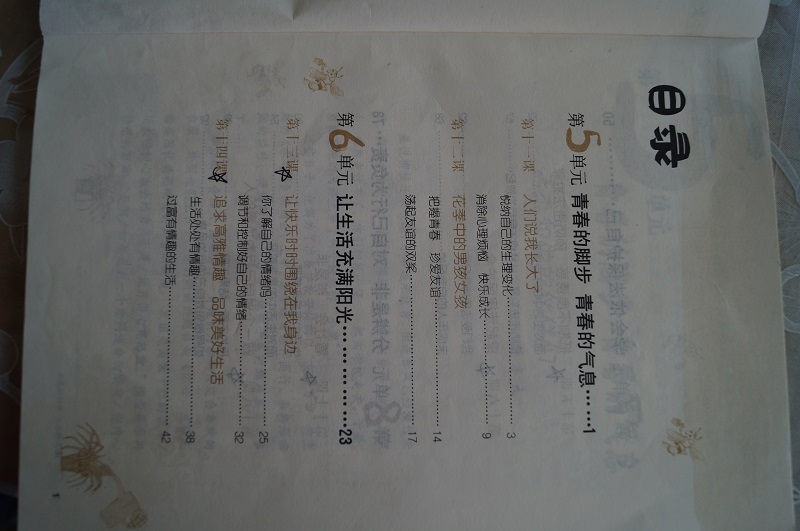 目录
第5单元 青春的脚步 青春的气息……1
第十一课 人们说我长大了
悦纳自己的生理变化……3
消除心理烦恼 快乐成长……9
第十二课 花季中的男孩女孩
把握青春 珍爱友谊……14
荡起友谊的双桨……17
第6单元 让生活充满阳光…………23
第十三课 让快乐时时围绕在我身边
你了解自己的情绪吗……25
调节和控制好自己的情绪……32
第十四课 追求高雅情趣 品味美好生活
生活处处有情趣……38
过富有情趣的生活……42
1